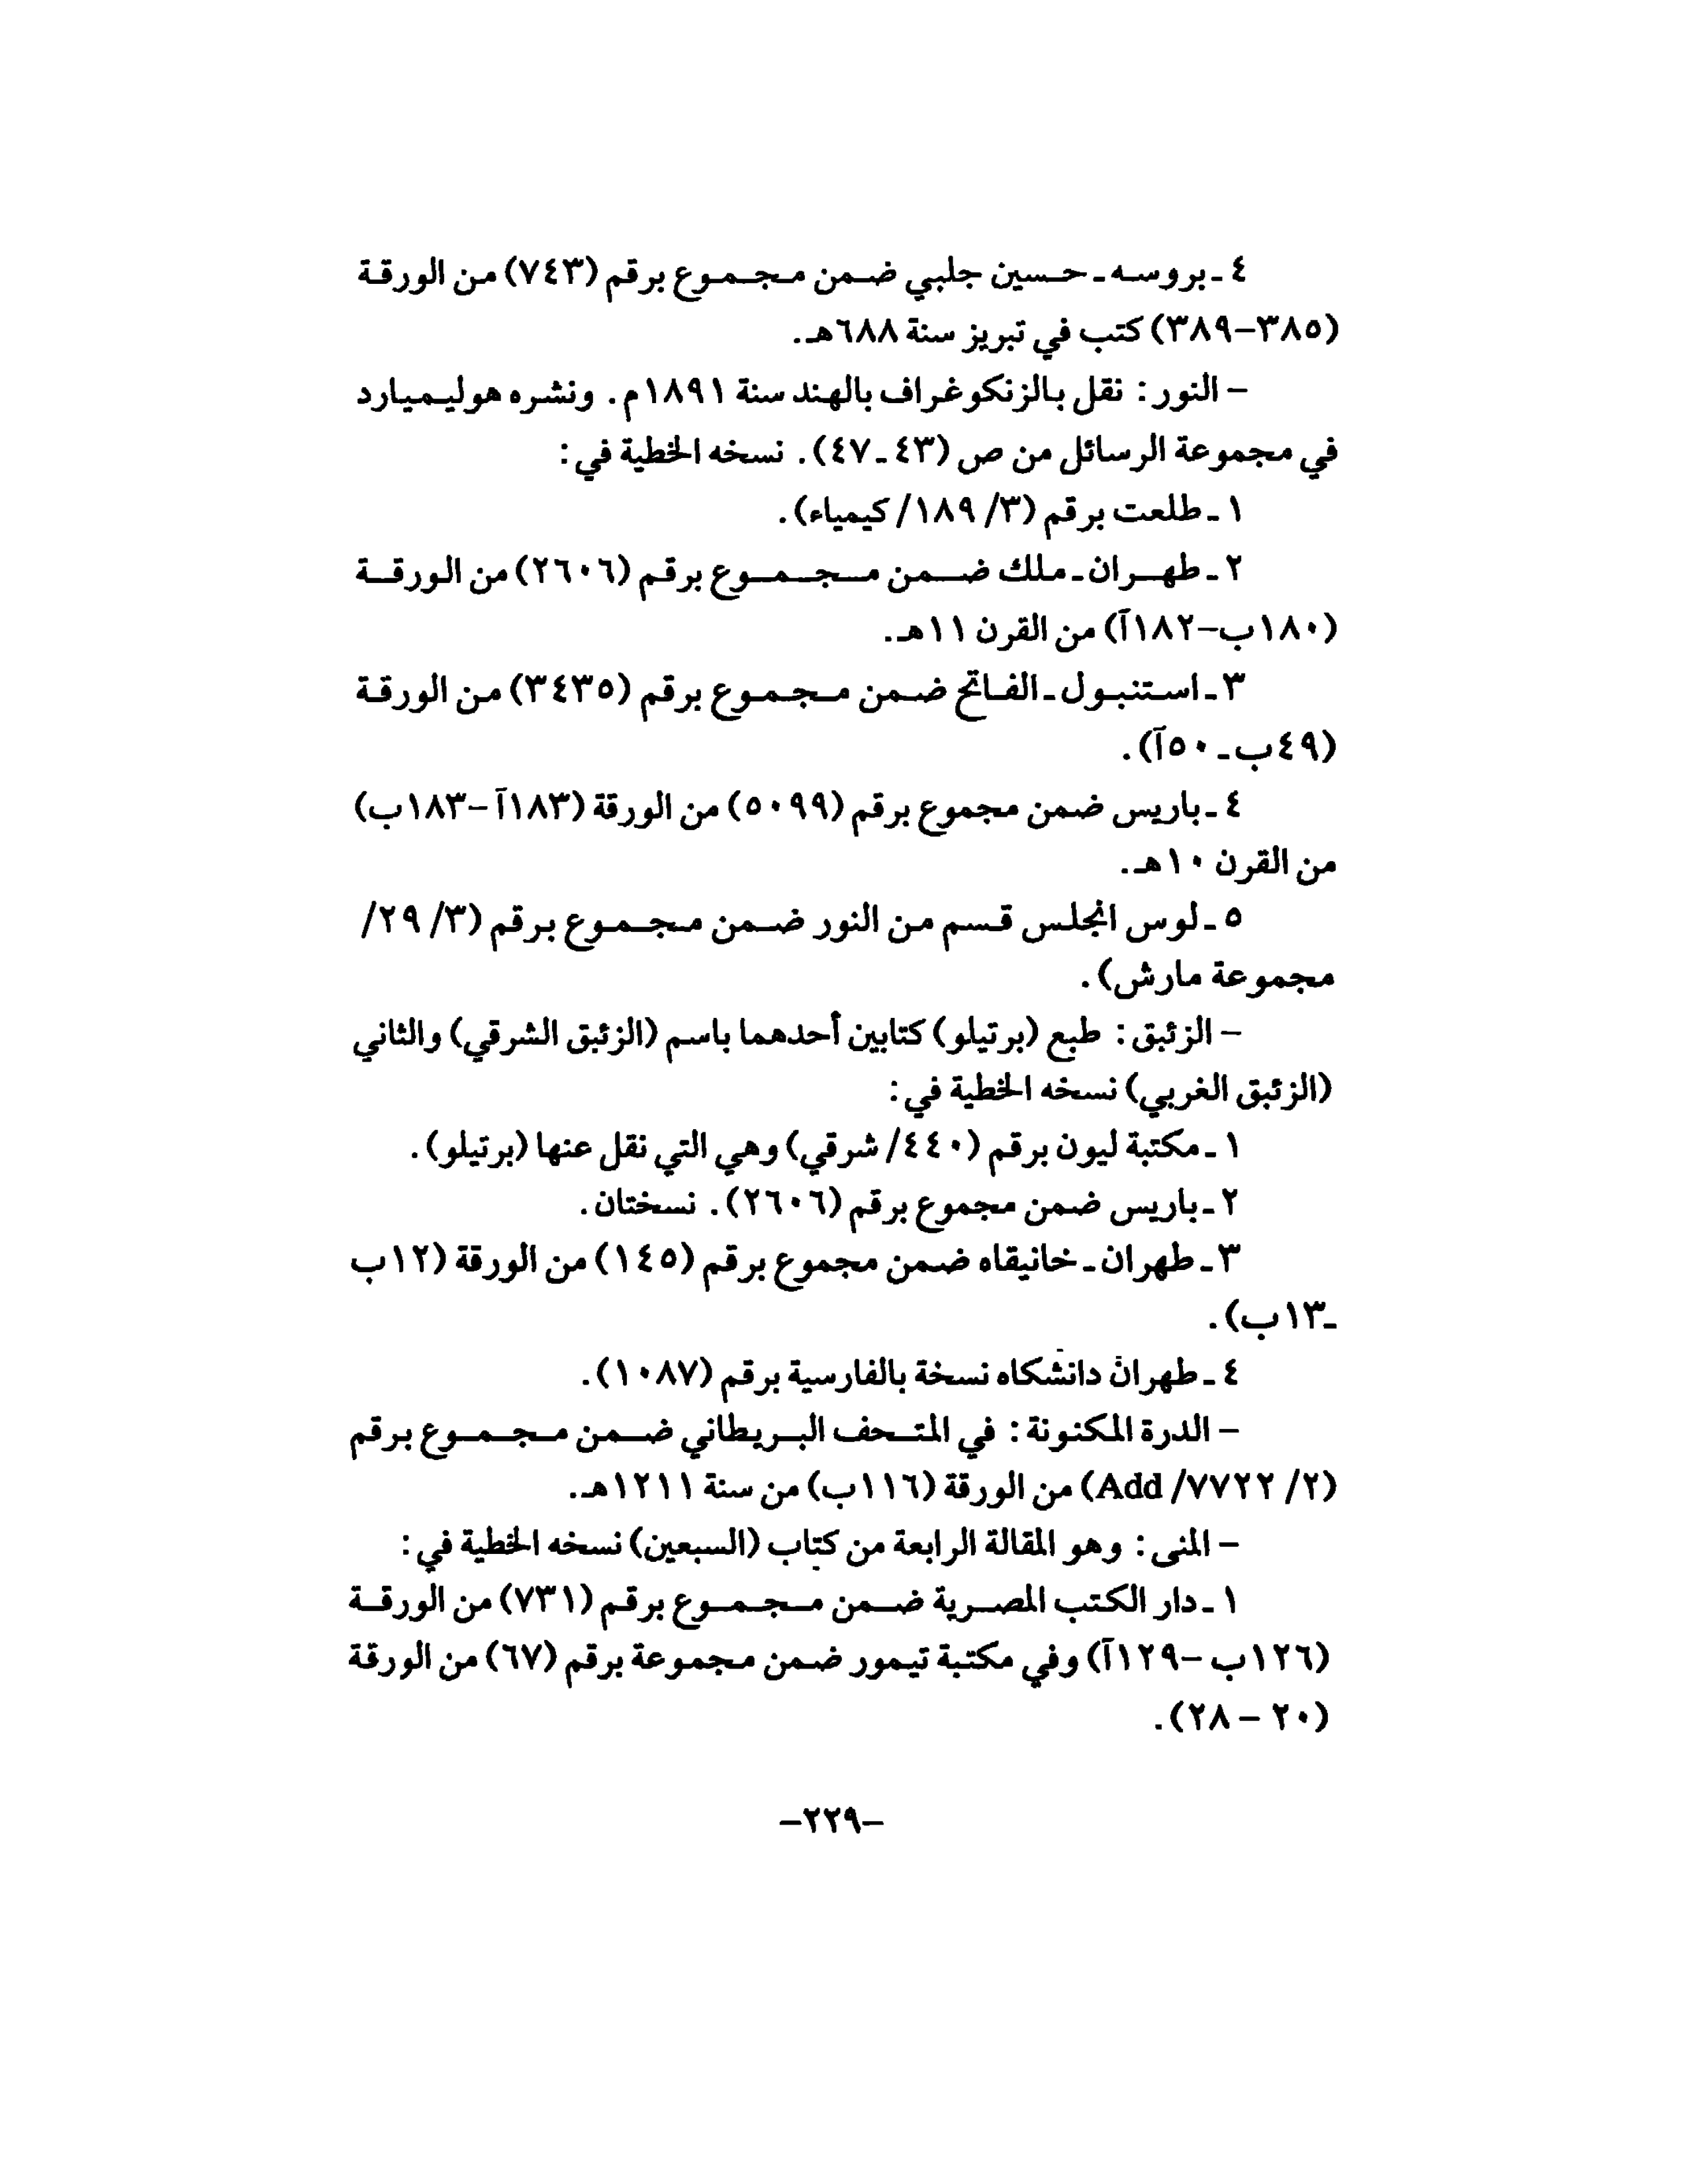 ٤ ـ بروسه ـ حسين جلبي ضمن مجموع برقم (٧٤٣) من الورقة
(٣٨٥–٣٨٩) كتب في تبريز سنة ٦٨٨هـ.
– النور: نقل بالزنكوغراف بالهند سنة ١٨٩١م. ونشره هوليميارد
في مجموعة الرسائل من ص (٤٣ـ٤٧). نسخه الخطية في:
١ ـ طلعت برقم (٣/ ١٨٩/ كيمياء).
٢ ـ طهران ـ ملك ضمن مجموع برقم (٢٦٠٦) من الورقة
(١٨٠ب–١٨٢آ) من القرن ١١هـ.
٣ ـ استنبول ـ الفاتح ضمن مجموع برقم (٣٤٣٥) من الورقة
(٤٩ب ـ ٥٠آ).
٤ ـ باريس ضمن مجموع برقم (٥٠٩٩) من الورقة (١٨٣آ –١٨٣ب)
من القرن ١٠هـ.
٥ ـ لوس انجلس قسم من النور ضمن مجموع برقم (٣/ ٢٩/
مجموعة مارش).
– الزئبق: طبع (برتيلو) كتابين أحدهما باسم (الزئبق الشرقي) والثاني
(الزئبق الغربي) نسخه الخطية في:
١ ـ مكتبة ليون برقم (٤٤٠/ شرقي) وهي التي نقل عنها (برتيلو).
٢ ـ باريس ضمن مجموع برقم (٢٦٠٦). نسختان.
٣ ـ طهران ـ خانيقاه ضمن مجموع برقم (١٤٥) من الورقة (١٢ب
ـ١٣ب).
٤ ـ طهران دانشكاه نسخة بالفارسية برقم (١٠٨٧).
– الدرة المكنونة: في المتحف البريطاني ضمن مجموع برقم
(٢/ ٧٧٢٢/ Add) من الورقة (١١٦ب) من سنة ١٢١١هـ.
– المنى: وهو المقالة الرابعة من كتاب (السبعين) نسخه الخطية في:
١ ـ دار الكتب المصرية ضمن مجموع برقم (٧٣١) من الورقة
(١٢٦ب –١٢٩آ) وفي مكتبة تيمور ضمن مجموعة برقم (٦٧) من الورقة
(٢٠ – ٢٨).
–٢٢٩–